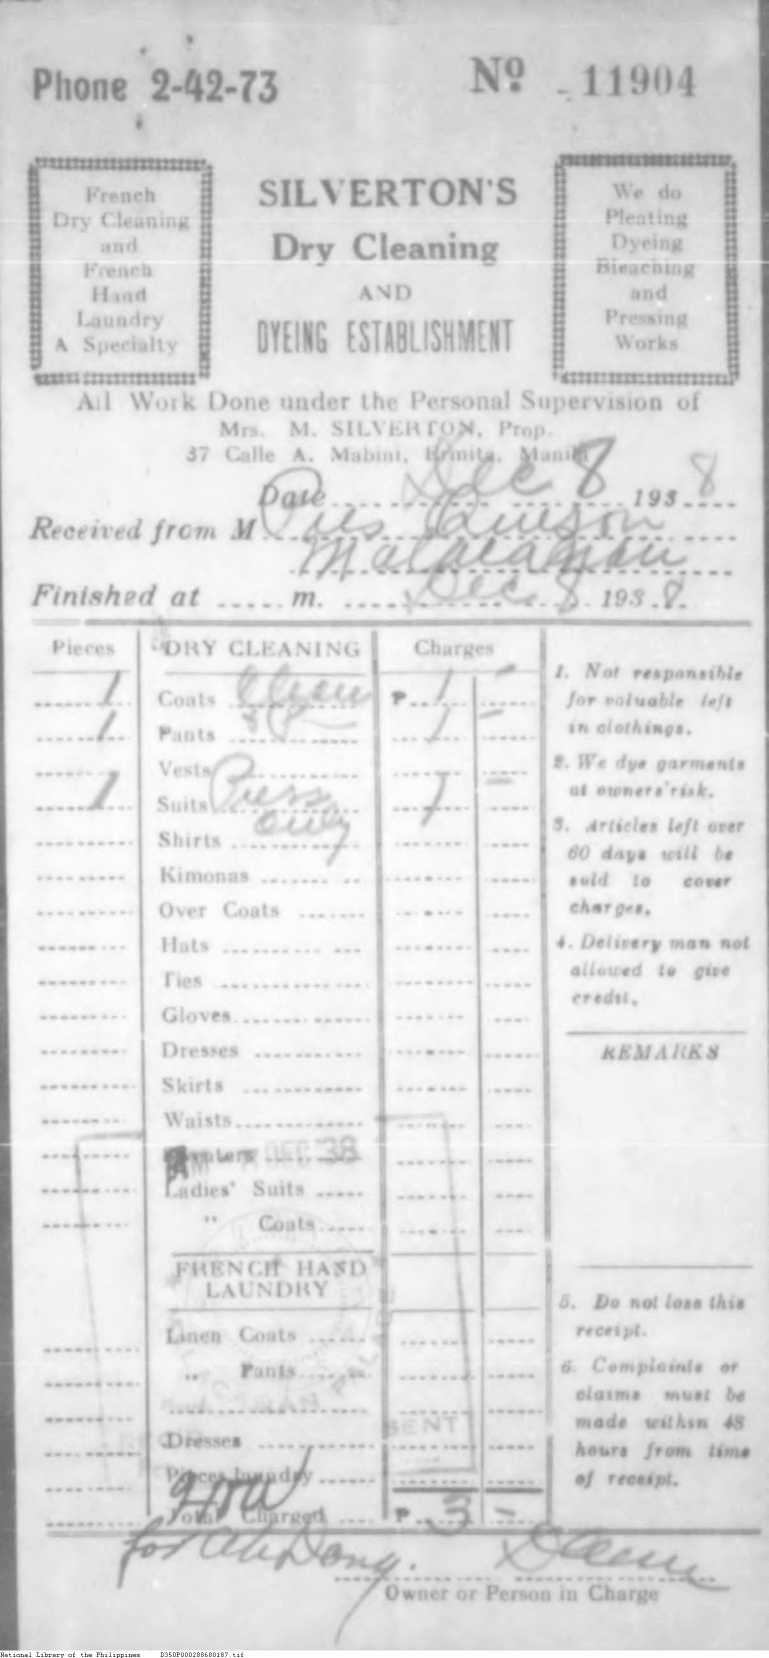 Phone 2-42-73
Nº 11904
French
Dry Cleaning
and
French
Hand
Laundry
A Specialty
SILVERTON'S
Dry Cleaning
AND
DYEING ESTABLISHMENT
We do
Pleating
Dyeing
Bleaching
and
Pressing
Works
All Work Done under the Personal Supervision of
Mrs. M. SILVERTON, Prop.
37 Calle A. Mabini, Ermita, Manila
Date Dec 8 1938
Received from M Pres Quezon
Malacañan
Finished at m. Dec. 8 1938
Pieces DRY CLEANING Charges
1 Coats Clean ₱ 1 -
1 Pants & P 1 -
Vests
1 Suits Press only 1 -
Shirts
Kimonas
Over Coats
Hats
Ties
Gloves
Dresses
Skirts
Waists
Sweaters
DEC '38
Ladies' Suits
" Coats
FRENCH HAND
LAUNDRY
Linen Coats
" Pants
SENT
Dresses
Pieces laundry
Total Charged ₱ 3 -
1. Not responsible
for valuable left
in clothings.
2. We dye garments
at owners' risk.
3. Articles left over
60 days will be
sold to cover
charges.
4. Delivery man not
allowed to give
credit.
REMARKS
5. Do not lose this
receipt.
6. Complaints or
claims must be
made within 48
hours from time
of receipt.
for Ah Dong.
Owner or Person in Charge
National Library of the Philippines D350P000288680187.tif